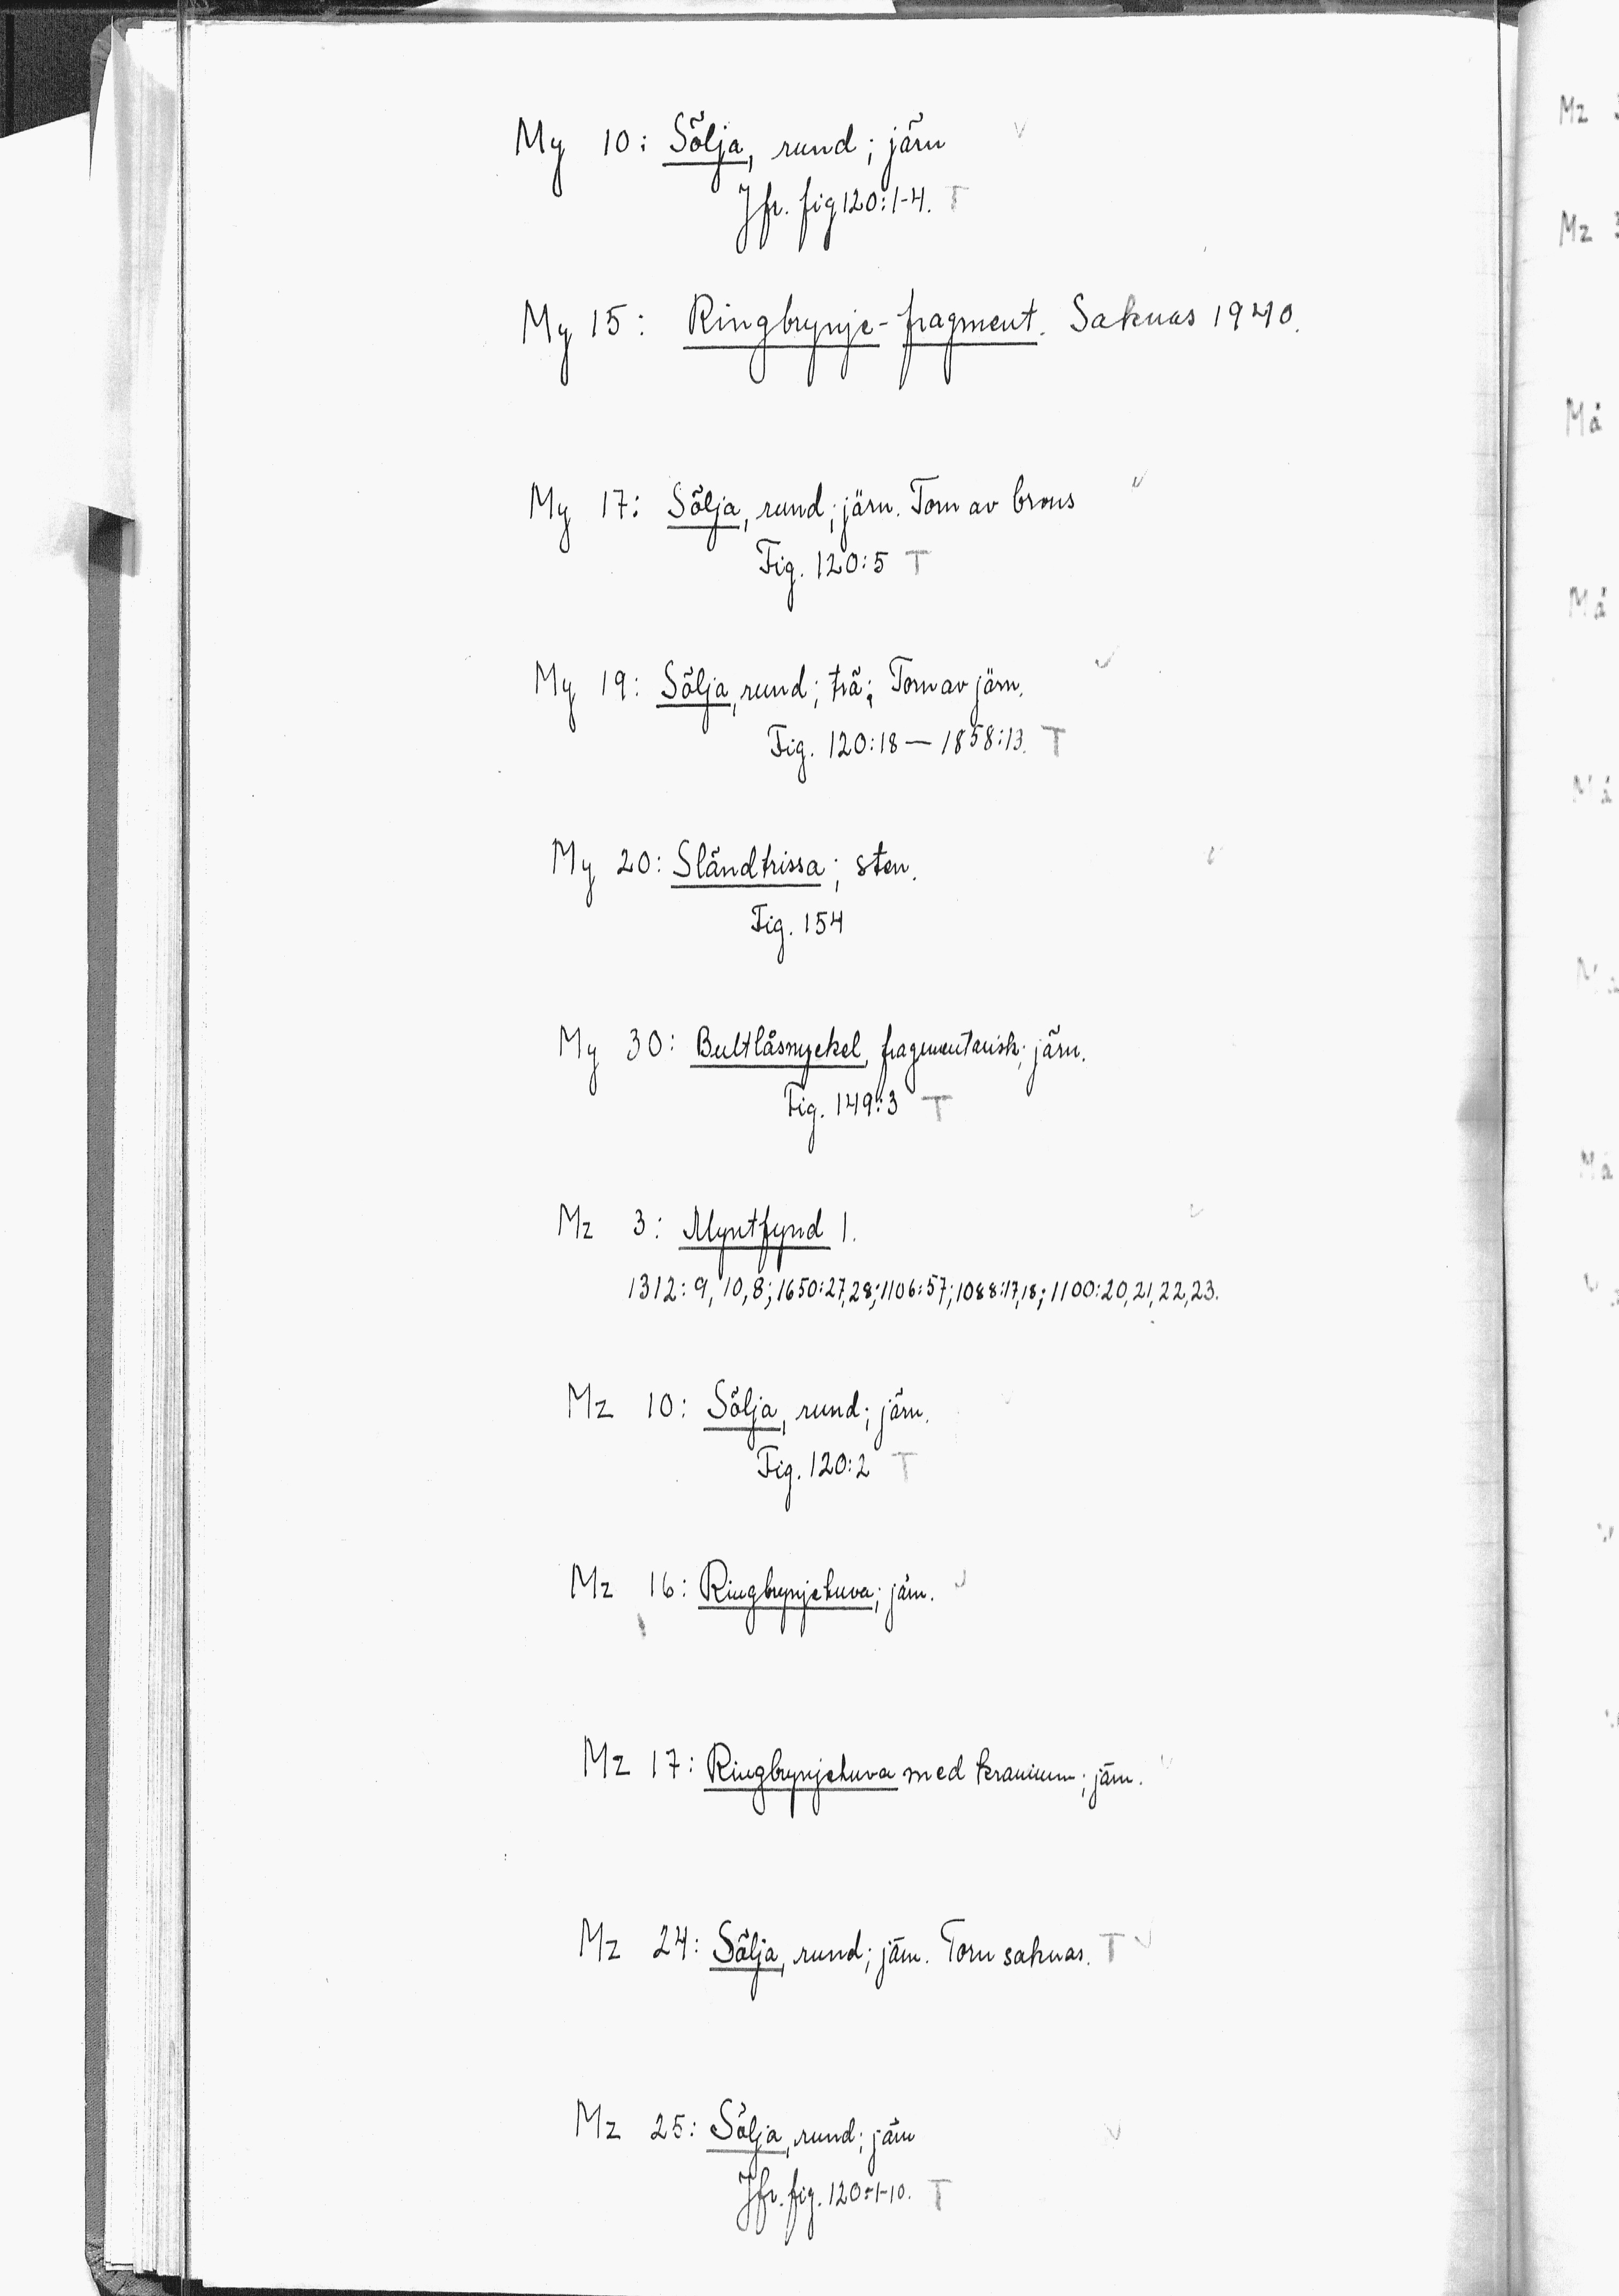 My 10: Sölja, rund; järn
Jfr. fig 120:1-4. T
My 15: Ringbrynje-fragment. Saknas 1940.
My 17: Sölja, rund; järn. Torn av brons
Fig. 120:5 T
My 19: Sölja, rund; trä; Torn av järn.
Fig. 120:18 — 1858:13. T
My 20: Sländtrissa; sten.
Fig. 154
My 30: Bultlåsnyckel, fragmentarisk; järn.
Fig. 149:3 T
Mz 3: Myntfynd 1.
1312: 9, 10, 8; 1650:27,28; 1106:57; 1088:17,18; 1100:20,21,22,23.
Mz 10: Sölja, rund; järn.
Fig. 120:2 T
Mz 16: Ringbrynjehuva; järn.
Mz 17: Ringbrynjehuva med kranium; järn.
Mz 24: Sölja, rund; järn. Torn saknas. T
Mz 25: Sölja, rund; järn
Jfr. fig. 120:1-10. T
Mz
Mz
Må
Må
Må
Må